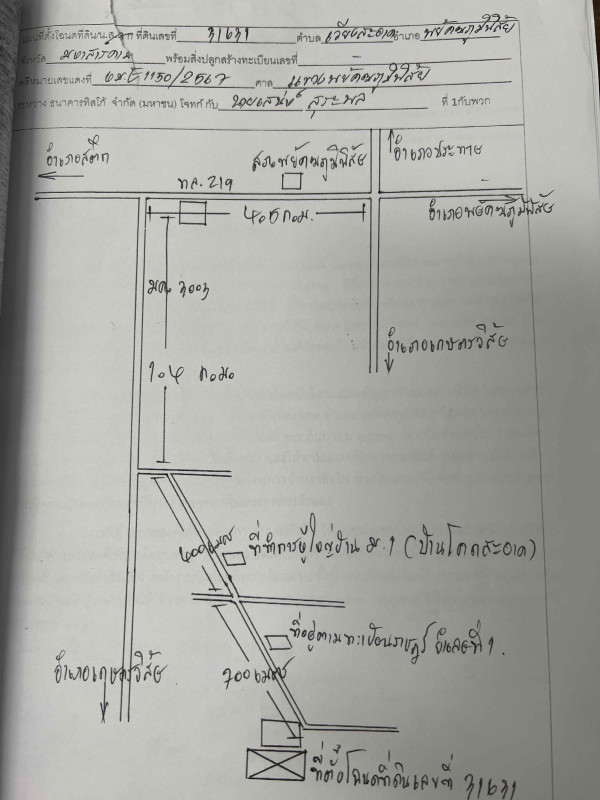 แผนที่ตั้งโฉนดที่ดิน/น.ส.3ก ที่ดินเลขที่ 31631 ตำบล เวียงสะอาด อำเภอ พยัคฆภูมิพิสัย
จังหวัด มหาสารคาม พร้อมสิ่งปลูกสร้างทะเบียนเลขที่
คดีหมายเลขแดงที่ ผบE1150/2567 ศาล แขวงพยัคฆภูมิพิสัย
ระหว่าง ธนาคารทิสโก้ จำกัด (มหาชน) โจทก์ กับ นายเสน่ห์ สุระพล ที่ 1กับพวก
อำเภอสตึก
สภ.พยัคฆภูมิพิสัย
อำเภอประทาย
ทล.219
4.5 ก.ม.
อำเภอพยัคฆภูมิพิสัย
มค. 3003
อำเภอเกษตรวิสัย
1.4 ก.ม.
400 เมตร
ที่ทำการผู้ใหญ่บ้าน ม.1 (บ้านโคกสะอาด)
ที่อยู่ตามทะเบียนราษฎร์ จำเลยที่ 1.
700 เมตร
อำเภอเกษตรวิสัย
ที่ตั้งโฉนดที่ดินเลขที่ 31631